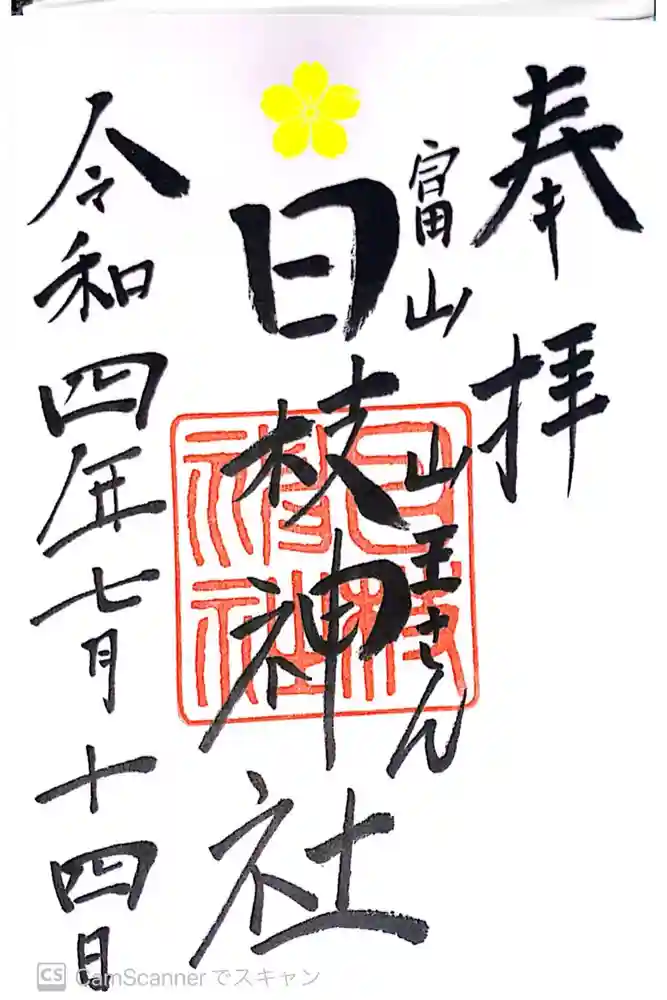 奉拝
富山
山王さん
日枝神社
日枝神社
令和四年七月十四日
CS CamScannerでスキャン